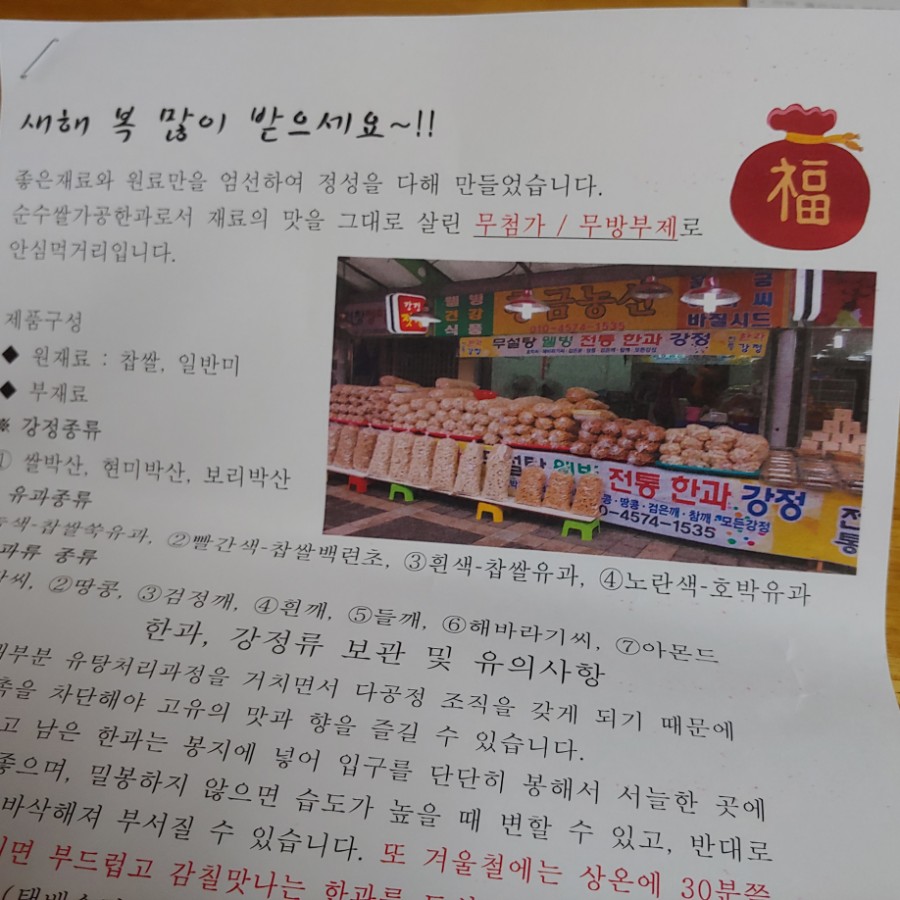 새해 복 많이 받으세요~!!
福
좋은재료와 원료만을 엄선하여 정성을 다해 만들었습니다.
순수쌀가공한과로서 재료의 맛을 그대로 살린 무첨가 / 무방부제로
안심먹거리입니다.
웰빙
건강
식품
황금농산
010-4574-1535
씨
바질시드
무설탕 웰빙 전통 한과 강정
한과
강정
웰빙 전통 한과 강정
콩·땅콩·검은깨·참깨 모든강정
0-4574-1535
전통
제품구성
◆ 원재료 : 찹쌀, 일반미
◆ 부재료
※ 강정종류
① 쌀박산, 현미박산, 보리박산
유과종류
녹색-찹쌀쑥유과, ②빨간색-찹쌀백련초, ③흰색-찹쌀유과, ④노란색-호박유과
과류 종류
②땅콩, ③검정깨, ④흰깨, ⑤들깨, ⑥해바라기씨, ⑦아몬드
한과, 강정류 보관 및 유의사항
대부분 유탕처리과정을 거치면서 다공정 조직을 갖게 되기 때문에
촉을 차단해야 고유의 맛과 향을 즐길 수 있습니다.
고 남은 한과는 봉지에 넣어 입구를 단단히 봉해서 서늘한 곳에
좋으며, 밀봉하지 않으면 습도가 높을 때 변할 수 있고, 반대로
바삭해져 부서질 수 있습니다. 또 겨울철에는 상온에 30분쯤
면 부드럽고 감칠맛나는 한과를